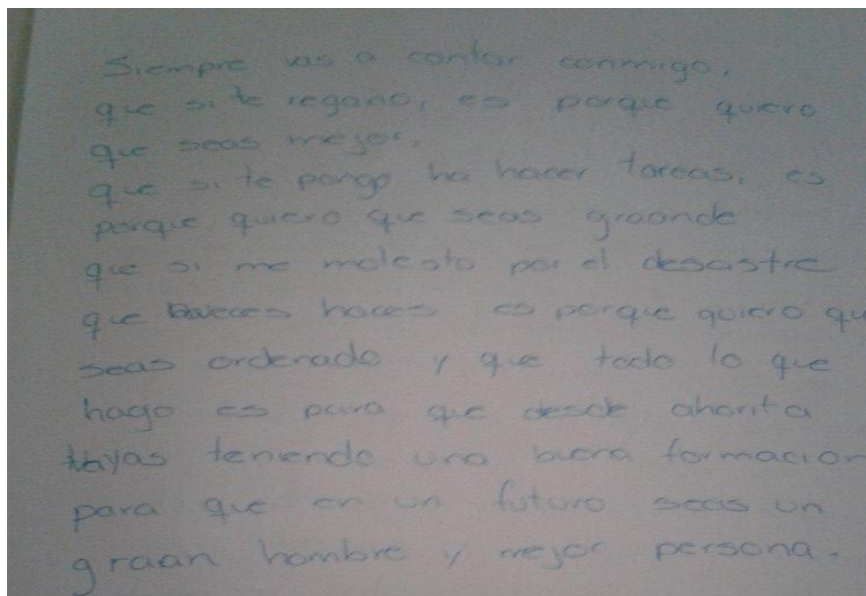 Siempre vas a contar conmigo,
que si te regaño, es porque quiero
que seas mejor,
que si te pongo ha hacer tareas, es
porque quiero que seas graande
que si me molesto por el desastre
que aveces haces es porque quiero qu
seas ordenado y que todo lo que
hago es para que desde ahorita
vayas teniendo una buena formacion
para que en un futuro seas un
graan hombre y mejor persona.